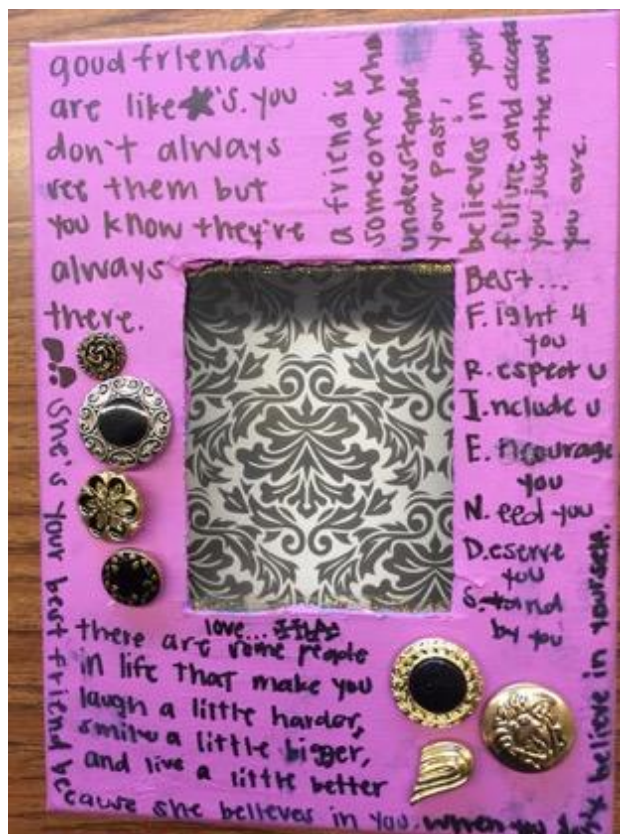 good friends
are like ★'s. you
don't always
see them but
you know they're
always
there.
a friend is
someone who
understands
your past,
believes in your
future and accepts
you just the way
you are.
Best...
F. ight 4
you
R. espect u
I. nclude u
E. ncourage
you
N. eed you
D. eserve
you
S. tand
by you
She's your best friend because she believes in you when you don't believe in yourself.
love...
there are some people
in life that make you
laugh a little harder,
smile a little bigger,
and live a little better